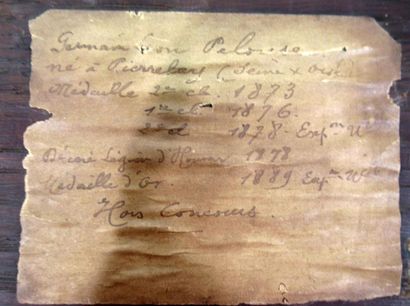 Germain Léon Pelouse
né à Pierrelaye (Seine & Oise)
Médaille 2me cl. 1873
1re cl. 1876.
2e cl 1878 Expon Ulle
Décoré Légion d'Honneur 1878
Médaille d'Or. 1889 Expon Ulle
Hors Concours.